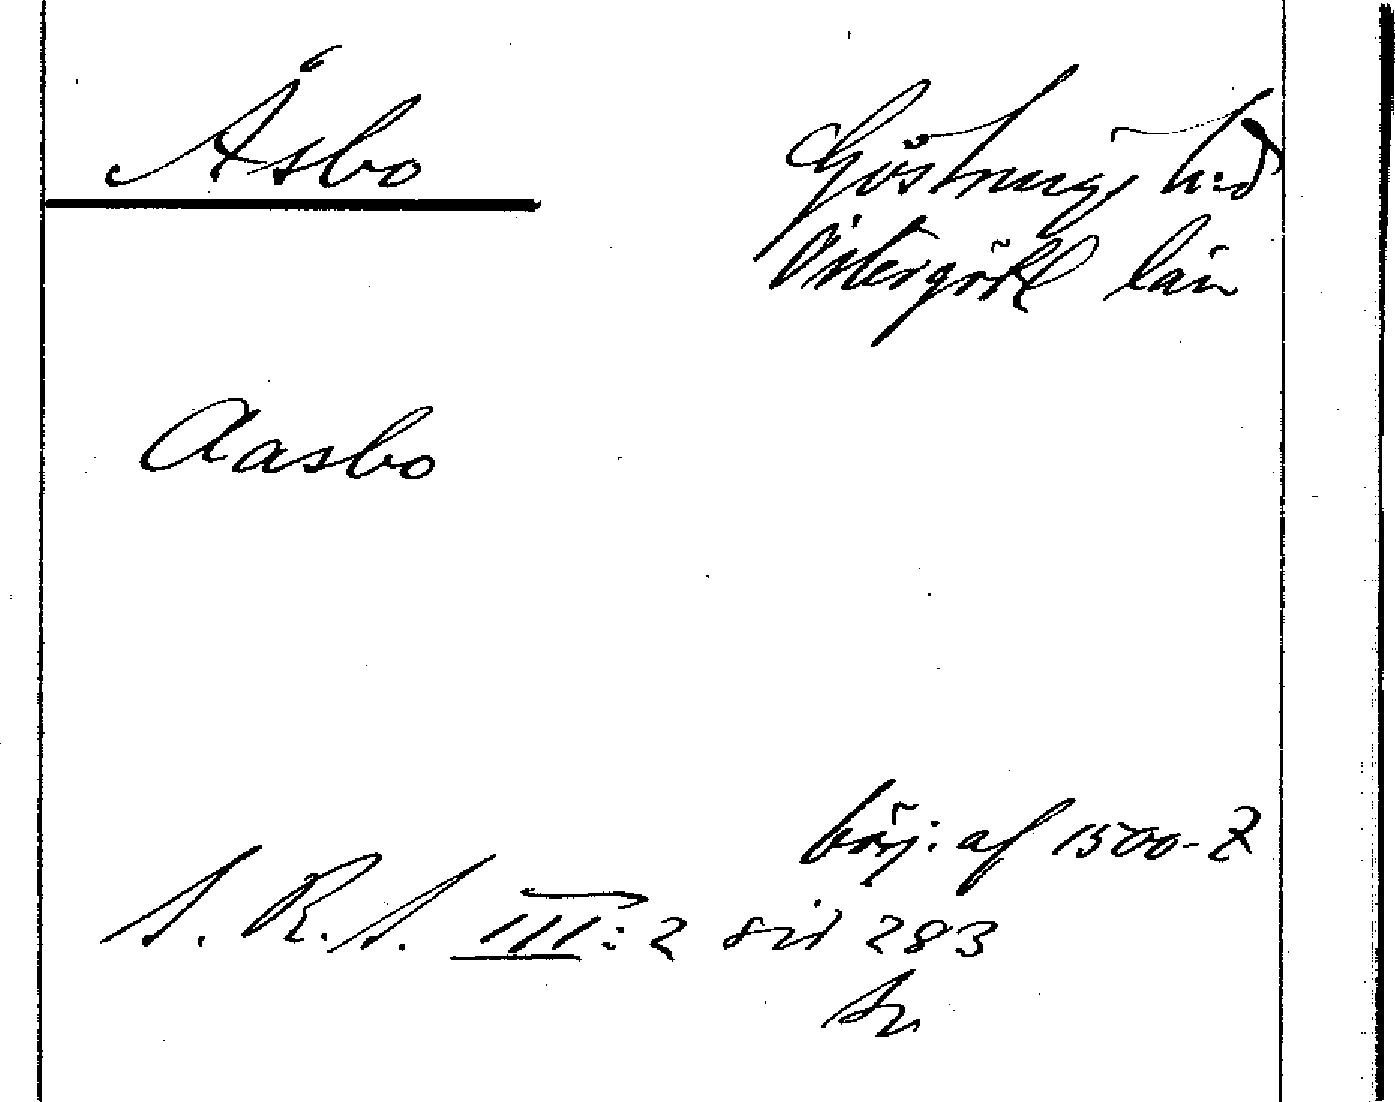 Åsbo
Göstrings h:d
Östergötl län
Aasbo
börj: af 1500-t
S. R. S. III:2 sid 283